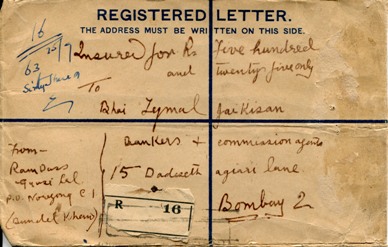 REGISTERED LETTER.
THE ADDRESS MUST BE WRITTEN ON THIS SIDE.
16
25/9
63
Sixty three
Insured for Rs Five hundred
and twenty five only
To
Bhai Tejmal Jaikisan
Bankers + commission agents
15 Dadeeth agiari lane
Bombay 2
From-
Ram Dass
Lal
P.O. Nowgong C I
(Bundelkhand)
R 16